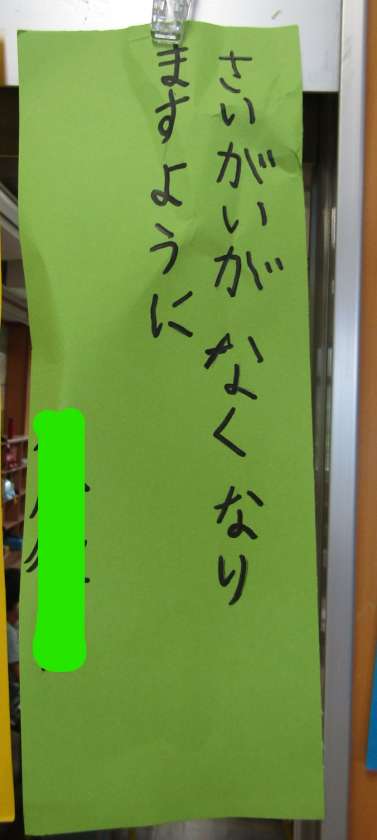 さいがいがなくなり
ますように